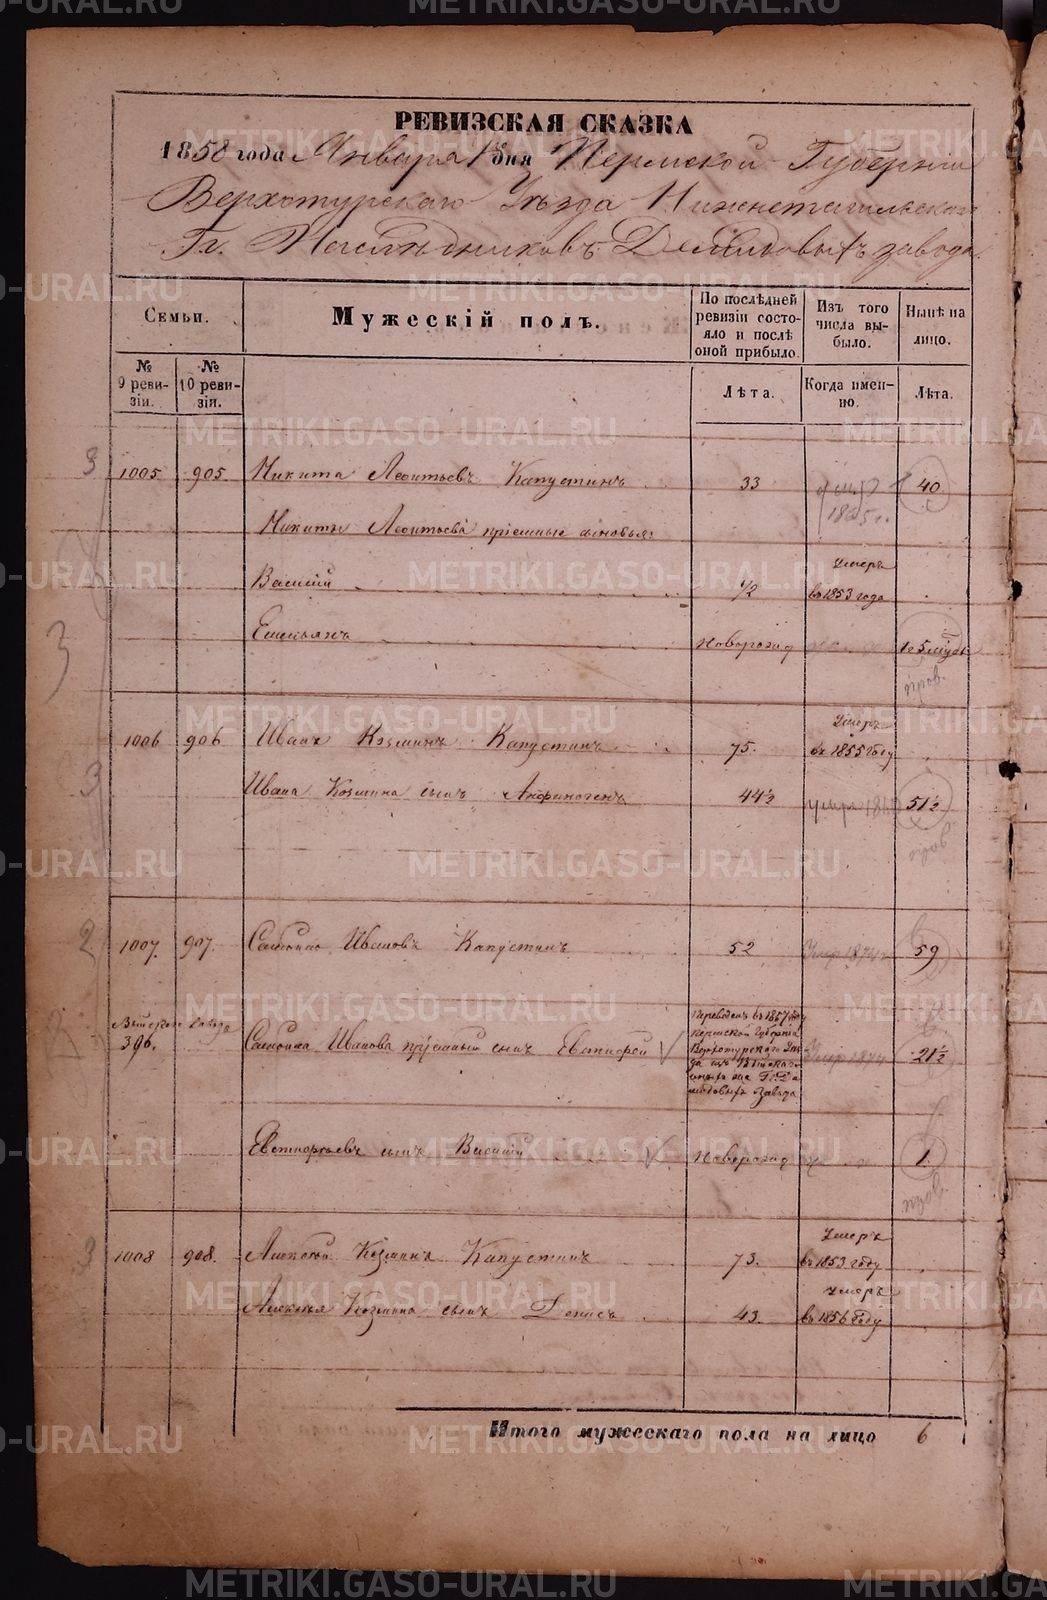 РЕВИЗСКАЯ СКАЗКА
1858 года Января 1 дня Пермской Губерніи
Верхотурскаго Уѣзда Нижнетагильскаго
Гг. Наслѣдниковъ Демидовыхъ завода.
Семьи.
Мужескій полъ.
По послѣдней ревизіи состояло и послѣ оной прибыло.
Изъ того числа выбыло.
Нынѣ на лицо.
№ 9 ревизіи.
№ 10 ревизіи.
Лѣта.
Когда именно.
Лѣта.
3 1005 905 Никита Леонтьевъ Капустинъ 33 40
Никиты Леонтьева пріемные сыновья:
Василій 1/2 Умеръ въ 1853 года
Емельянъ Новорожд 5
3
пров.
1006 906 Иванъ Козминъ Капустинъ 75. Умеръ въ 1855 году
3 Ивана Козмина сынъ Анфиногенъ 44½ 51½
пров.
2 1007. 907. Иванов Капустинъ 52 Умер 1874 59
завода
396. Иванова пріемный сынъ Евстифей 21½
Переведенъ въ 1857 году
Пермской Губерніи
Верхотурскаго Уѣзда
завода
сынъ Василій Новорожд 1.
пров.
3 1008 908. Алексѣй Козминъ Капустинъ 73. Умеръ въ 1853 году
Алексѣя Козмина сынъ Денисъ 43. Умеръ въ 1856 году
Итого мужескаго пола на лицо 6
METRIKI.GASO-URAL.RU